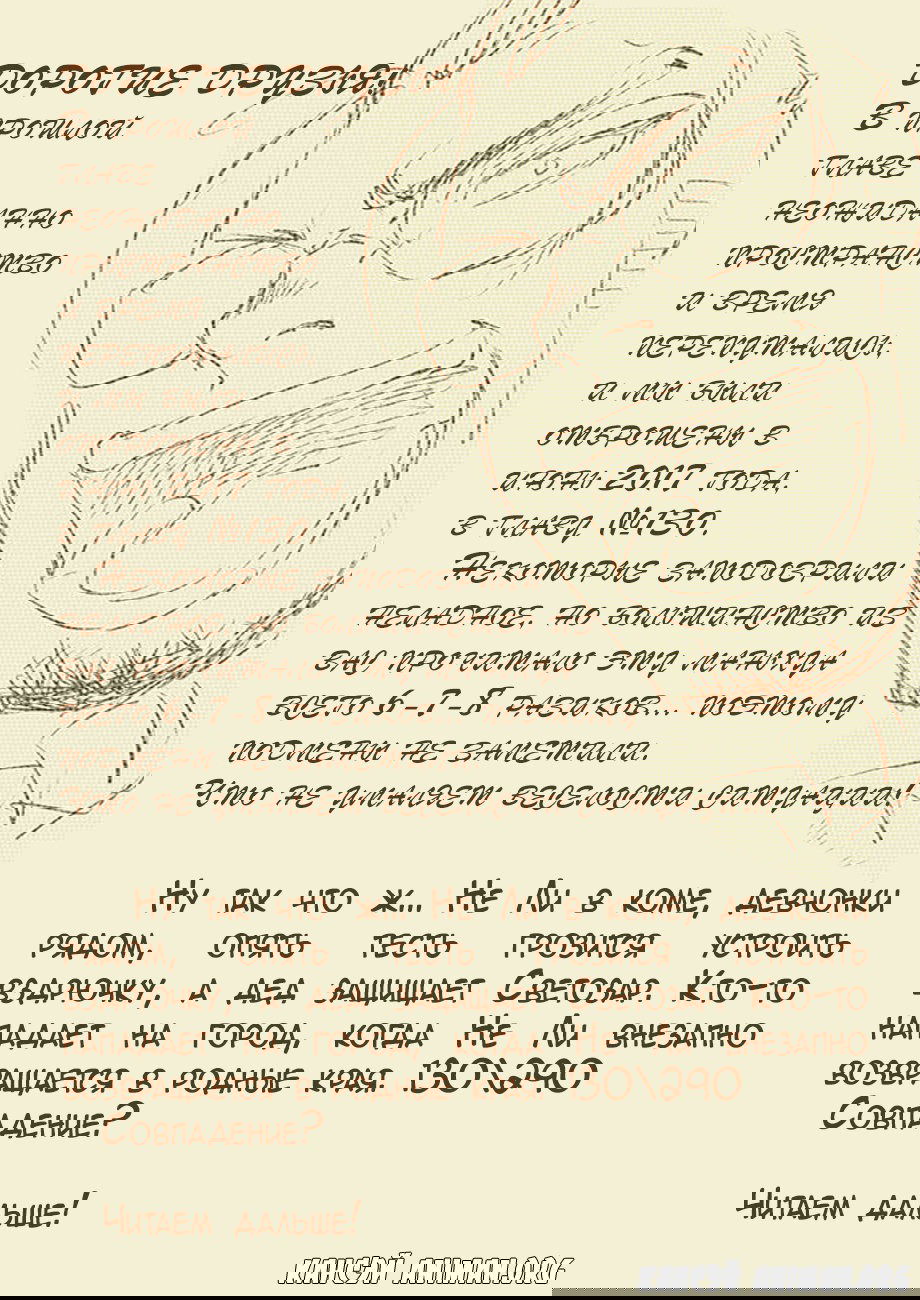 Дорогие друзья!
В прошлой
главе
неожиданно
пространство
и время
переплелись,
и мы были
отброшены в
июнь 2017 года,
в главу №130.
Некоторые заподозрили
неладное, но большинство из
вас прочитало эту маньхуа
всего 6-7-8 разиков... поэтому
подмены не заметили.
Что не умаляет веселости ситуации!
Ну так что ж... Не Ли в коме, девчонки
рядом, опять тесть грозится устроить
вздрючку, а дед защищает Световар. Кто-то
нападает на город, когда Не Ли внезапно
возвращается в родные края. 130\290
Совпадение?
Читаем дальше!